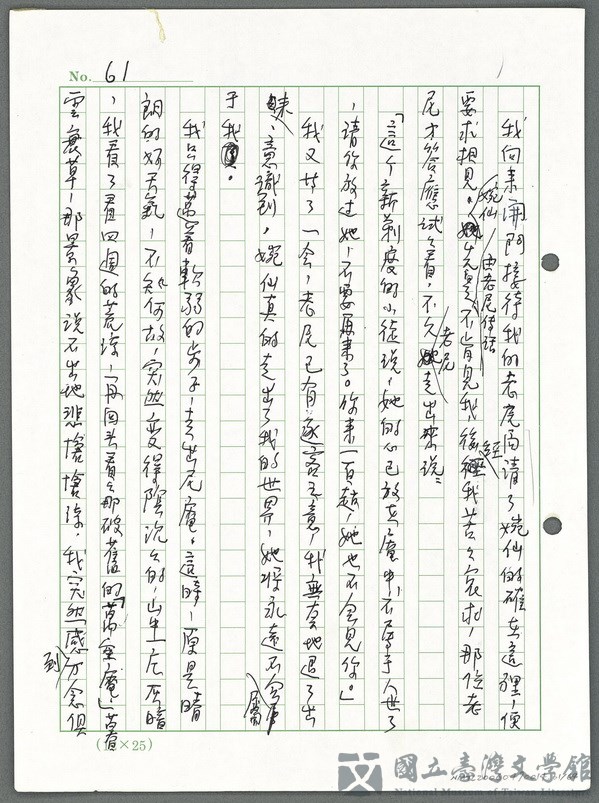 No. 61
我向來開門接待我的老尼問清了婉仙的確在這裡,便
要求相見。婉仙先是不肯見我,由老尼傳話,後經我苦苦哀求,那位老
尼才答應試試看,不久老尼走出來說:
「這个新剃度的小徒說,她的心已放在庵中,不屬于人世了
,請你放過她,不要再來了。你來一百趟,她也不会見你。」
我又站了一会,老尼已有逐客之意,我無奈地退了出
來,意識到,婉仙真的走出了我的世界,她將永遠不会屬
于我。
我只得邁着軟弱的步子,走出尼庵。這時,原是晴
朗的好天氣,不知何故,突然变得陰沉沉的,山上一片灰暗
,我看了看四週的荒涼,再回头看看那破舊的「萬重庵」,暮
雲衰草,那景象說不出地悲愴愴涼,我突然感到万念俱
(12×25)
國立臺灣文學館
National Museum of Taiwan Literature